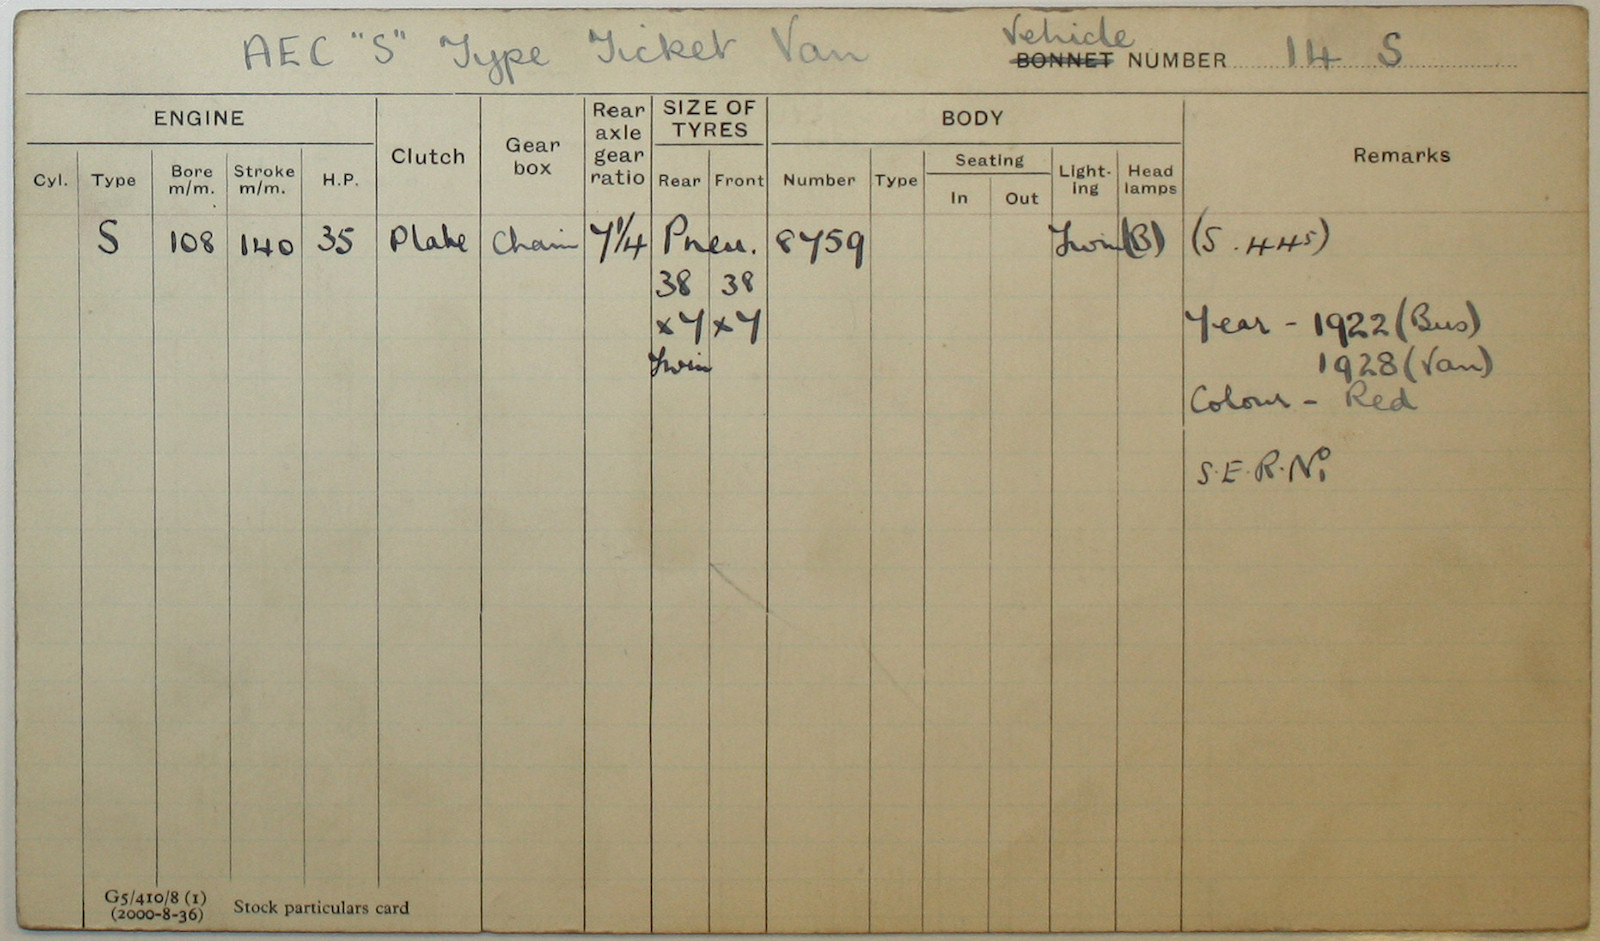 AEC "S" Type Ticket Van
Vehicle
BONNET NUMBER 14 S
ENGINE
Cyl.
Type
Bore
m/m.
Stroke
m/m.
H.P.
Clutch
Gear
box
Rear
axle
gear
ratio
SIZE OF
TYRES
Rear
Front
BODY
Number
Type
Seating
In
Out
Light-
ing
Head
lamps
Remarks
S 108 140 35 Plate Chain 7¼ Pneu. 8759 Twin (B) (S.445)
38 38
x7 x7
Twin
Year - 1922 (Bus)
1928 (Van)
Colour - Red
S.E.R. No 1
G5/410/8 (1)
(2000-8-36)
Stock particulars card